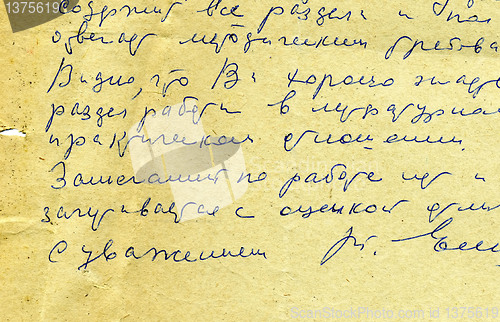 содержит все разделы и
отвечает методическим требова
Видно, что Вы хорошо знаете
раздел работы в литературном
практическом отношении.
Замечаний по работе нет и
засчитывается с оценкой отли
С уважением